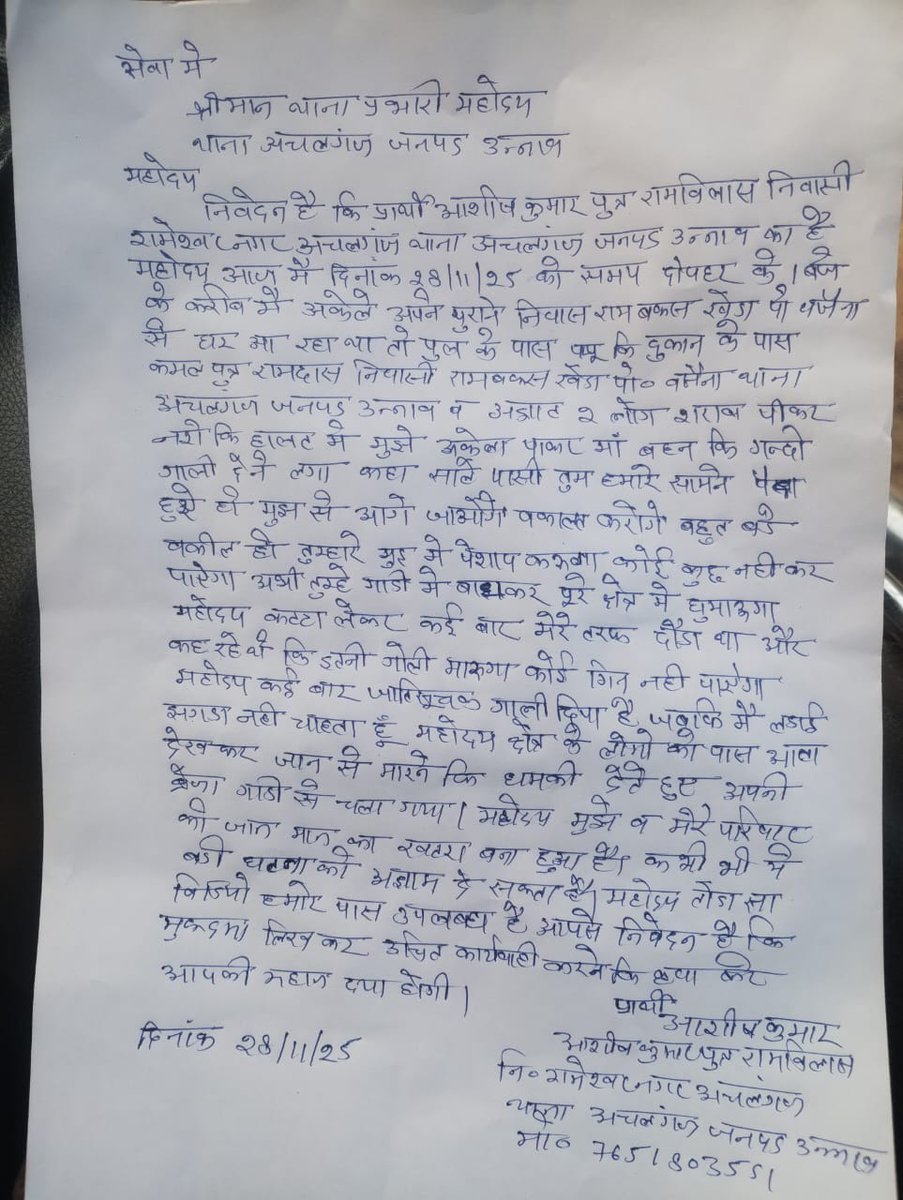 सेवा मे
श्रीमान थाना प्रभारी महोदय
थाना अचलगंज जनपद उन्नाव
महोदय
निवेदन है कि प्रार्थी आशीष कुमार पुत्र रामविलास निवासी
रामेश्वर नगर अचलगंज थाना अचलगंज जनपद उन्नाव का है
महोदय आज मै दिनांक 28/11/25 को समय दोपहर के 1 बजे
के करीब मै अकेले अपने पुराने निवास राम बकस खेडा पो
से घर आ रहा था तो पुल के पास पप्पू कि दुकान के पास
कमल पुत्र रामदास निवासी रामबकस खेडा पो० थाना
अचलगंज जनपद उन्नाव व अज्ञात 2 लोग शराब पीकर
नशे कि हालत मे मुझे अकेला पाकर माँ बहन कि गन्दी
गाली देने लगा कहा साले पासी तुम हमारे सामने पैदा
हुये हो मुझ से आगे जाओगे वकालत करोगे बहुत बडे
वकील हो तुम्हारे मुह मे पेशाप करूगा कोई कुछ नही कर
पाऐगा अभी तुम्हे गाडी मे बाधकर पूरे क्षेत्र मे घुमाऊगा
महोदय कट्टा लेकर कई बार मेरे तरफ दौडा था और
कह रहे थे कि इतनी गोली मारूगा कोई गिन नही पाऐगा
महोदय कई बार जातिसूचक गाली दिया है जबकि मै लडाई
झगडा नही चाहता हूँ महोदय क्षेत्र के लोगो को पास आता
देख कर जान से मारने कि धमकी देते हुए अपनी
ब्रेजा गाडी से चला गया। महोदय मुझे व मेरे परिवार
को जान माल का खतरा बना हुआ है। कभी भी ये
बडी घटना को अन्जाम दे सकता है। महोदय सा
विडियो हमारे पास उपलब्ध है आपसे निवेदन है कि
मुकदमा लिख कर उचित कार्यवाही करने कि कृपा करे
आपकी महान दया होगी।
प्रार्थी
आशीष कुमार
दिनांक 28/11/25
आशीष कुमार पुत्र रामविलास
नि० रामेश्वर नगर अचलगंज
थाना अचलगंज जनपद उन्नाव
मो० 7651803551